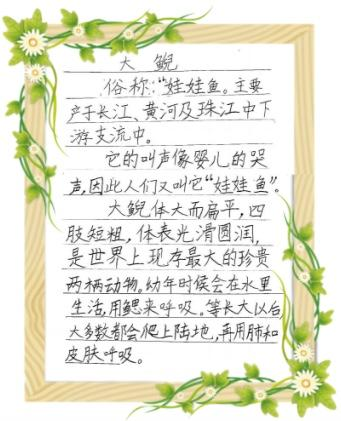 大鲵
俗称:“娃娃鱼。主要
产于长江、黄河及珠江中下
游支流中。
它的叫声像婴儿的哭
声,因此人们又叫它“娃娃鱼”。
大鲵体大而扁平,四
肢短粗,体表光滑圆润,
是世界上现存最大的珍贵
两栖动物。幼年时候会在水里
生活,用鳃来呼吸。等长大以后,
大多数都会爬上陆地,再用肺和
皮肤呼吸。